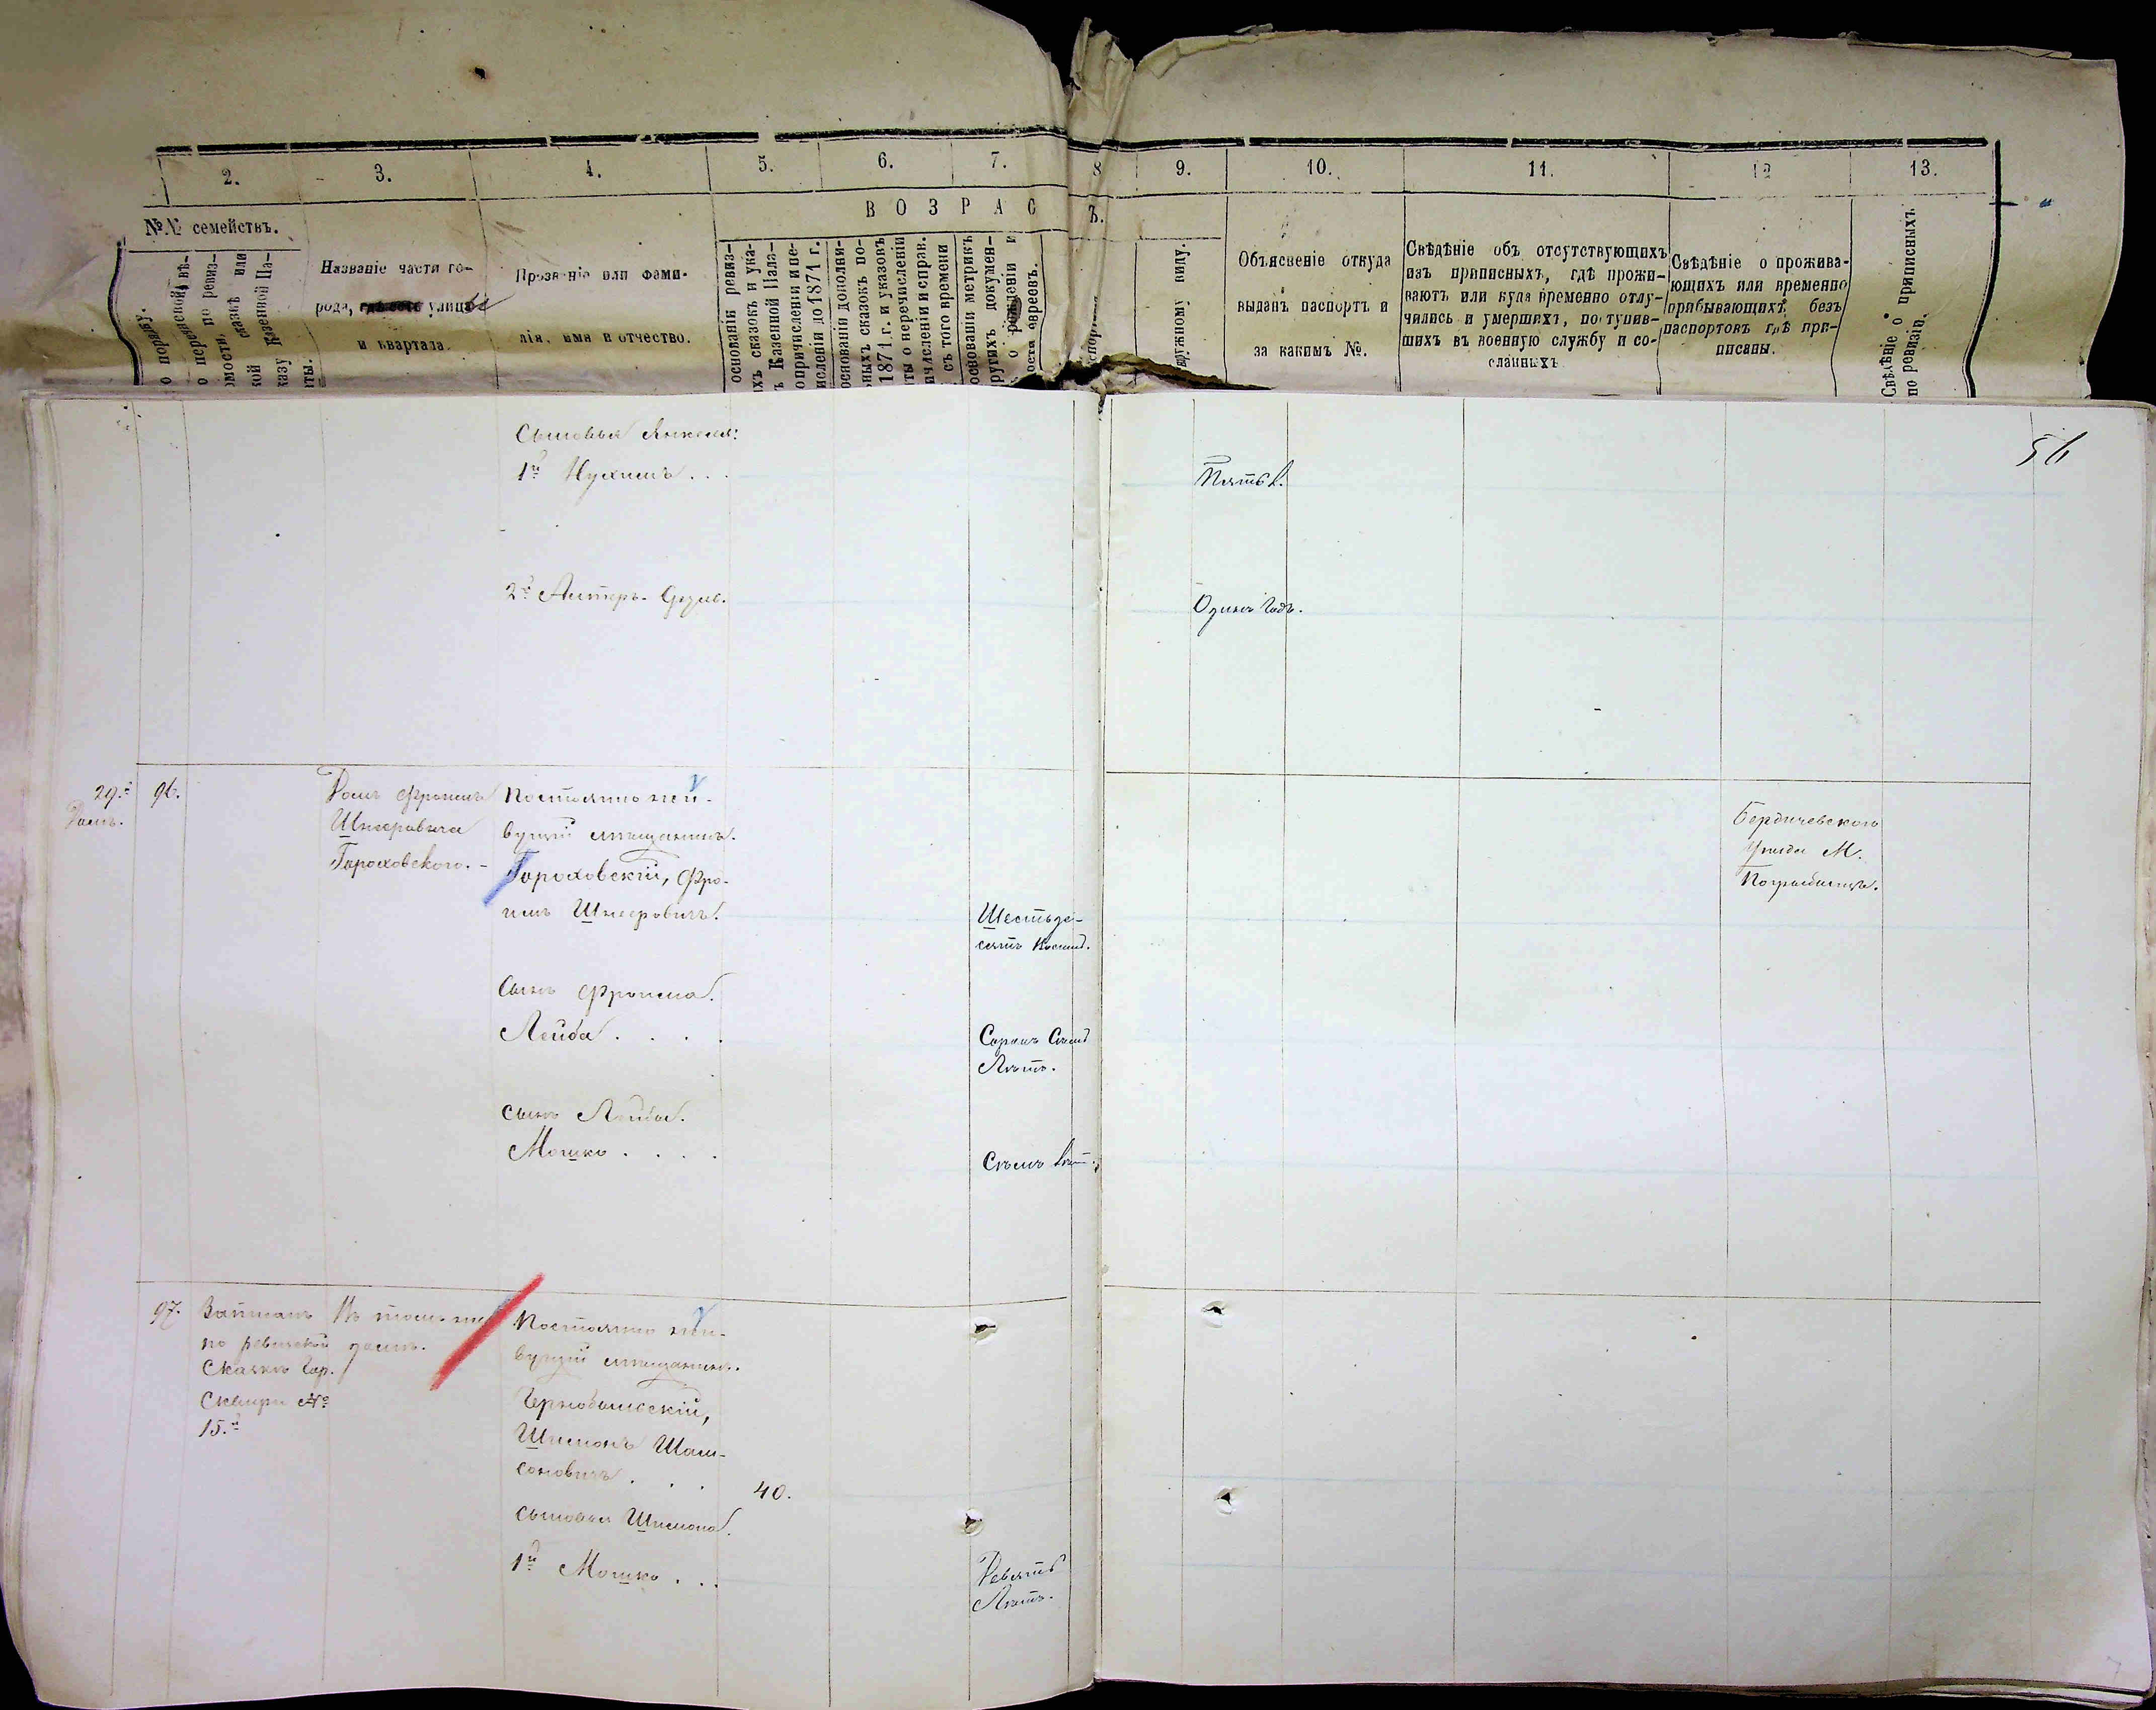 2. 3. 4. 5. 6. 7. 8 9. 10. 11. 12 13.
№№ семействъ.
В О З Р А С Ъ.
о порядку.
Названіе части го-
рода, улицы
и квартала.
Прозваніе или фами-
лія, имя и отчество.
основаніи ревиз-
хъ сказокъ и ука-
ъ Казенной Пала-
о причисленіи и пе-
исленіи до 1871 г.
основаніи дополни-
ныхъ сказокъ по-
1871 г. и указовъ
ты о перечисленіи
ичисленіи и справ.
съ того времени
основаніи метрикъ
ругихъ докумен-
о рожденіи и
ости евреевъ.
аружному виду.
Объясненіе откуда
выданъ паспортъ и
за какимъ №.
Свѣдѣніе объ отсутствующихъ
изъ приписныхъ, гдѣ прожи-
ваютъ или куда временно отлу-
чились и умершихъ, поступив-
шихъ въ военную службу и со-
сланныхъ
Свѣдѣніе о прожива-
ющихъ или временно
прибывающихъ безъ
паспортовъ гдѣ при-
писаны.
Свѣдѣніе о приписныхъ
по ревизіи.
56
Сыновья Янкеля:
1й Нухимъ . . . Пять л.
2й Аитеръ- Одинъ годъ.
29й Домъ. 96.
Домъ Фроима
Шнееровича
Гороховского.-
Постоянно жи-
вущій мѣщанинъ.
Гороховскій, Фро-
имъ Шнееровичъ.
Шестьде-
сятъ Восемь.
Бердичевского
Уѣзда М.
Погребищъ.
Сынъ Фроима.
Лейба . . . .
Сорокъ Семь
Лѣтъ.
Сынъ Лейбы.
Мошко . . . . Семь лѣт.
97. Записанъ
по ревизской
Сказкѣ гор.
Сквиры №
15й
Въ томъ же
домѣ.
Постоянно жи-
вущій мѣщанинъ.
Шимонъ Шам-
соновичъ . . . 40.
Сыновья Шимона.
1й Мошко . . .
Девять
Лѣтъ.